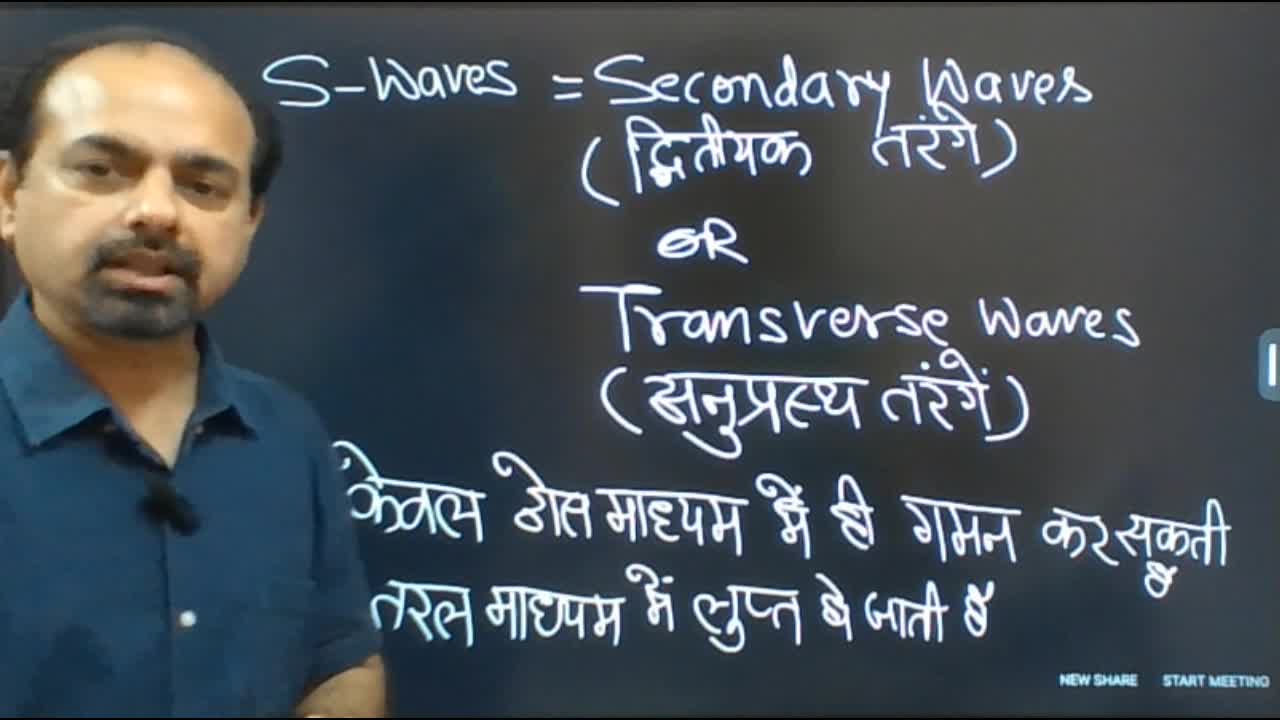 S-Waves = Secondary Waves
(द्वितीयक तरंगे)
OR
Transverse Waves
(अनुप्रस्थ तरंगें)
केवल ठोस माध्यम में ही गमन कर सकती है
तरल माध्यम में लुप्त हो जाती है
NEW SHARE START MEETING